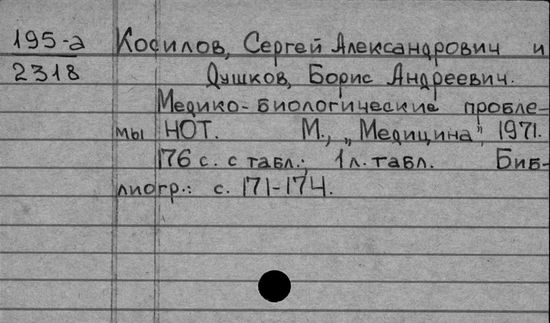 195-а Косилов, Сергей Александрович и
2318 Душков, Борис Андреевич.
Медико-биологические пробле-
мы НОТ. М., „Медицина", 1971.
176 с. с табл.; 1 л. табл. Биб-
лиогр.: с. 171-174.